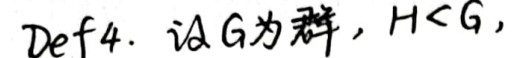 Def 4. 设 G 为群, H < G,